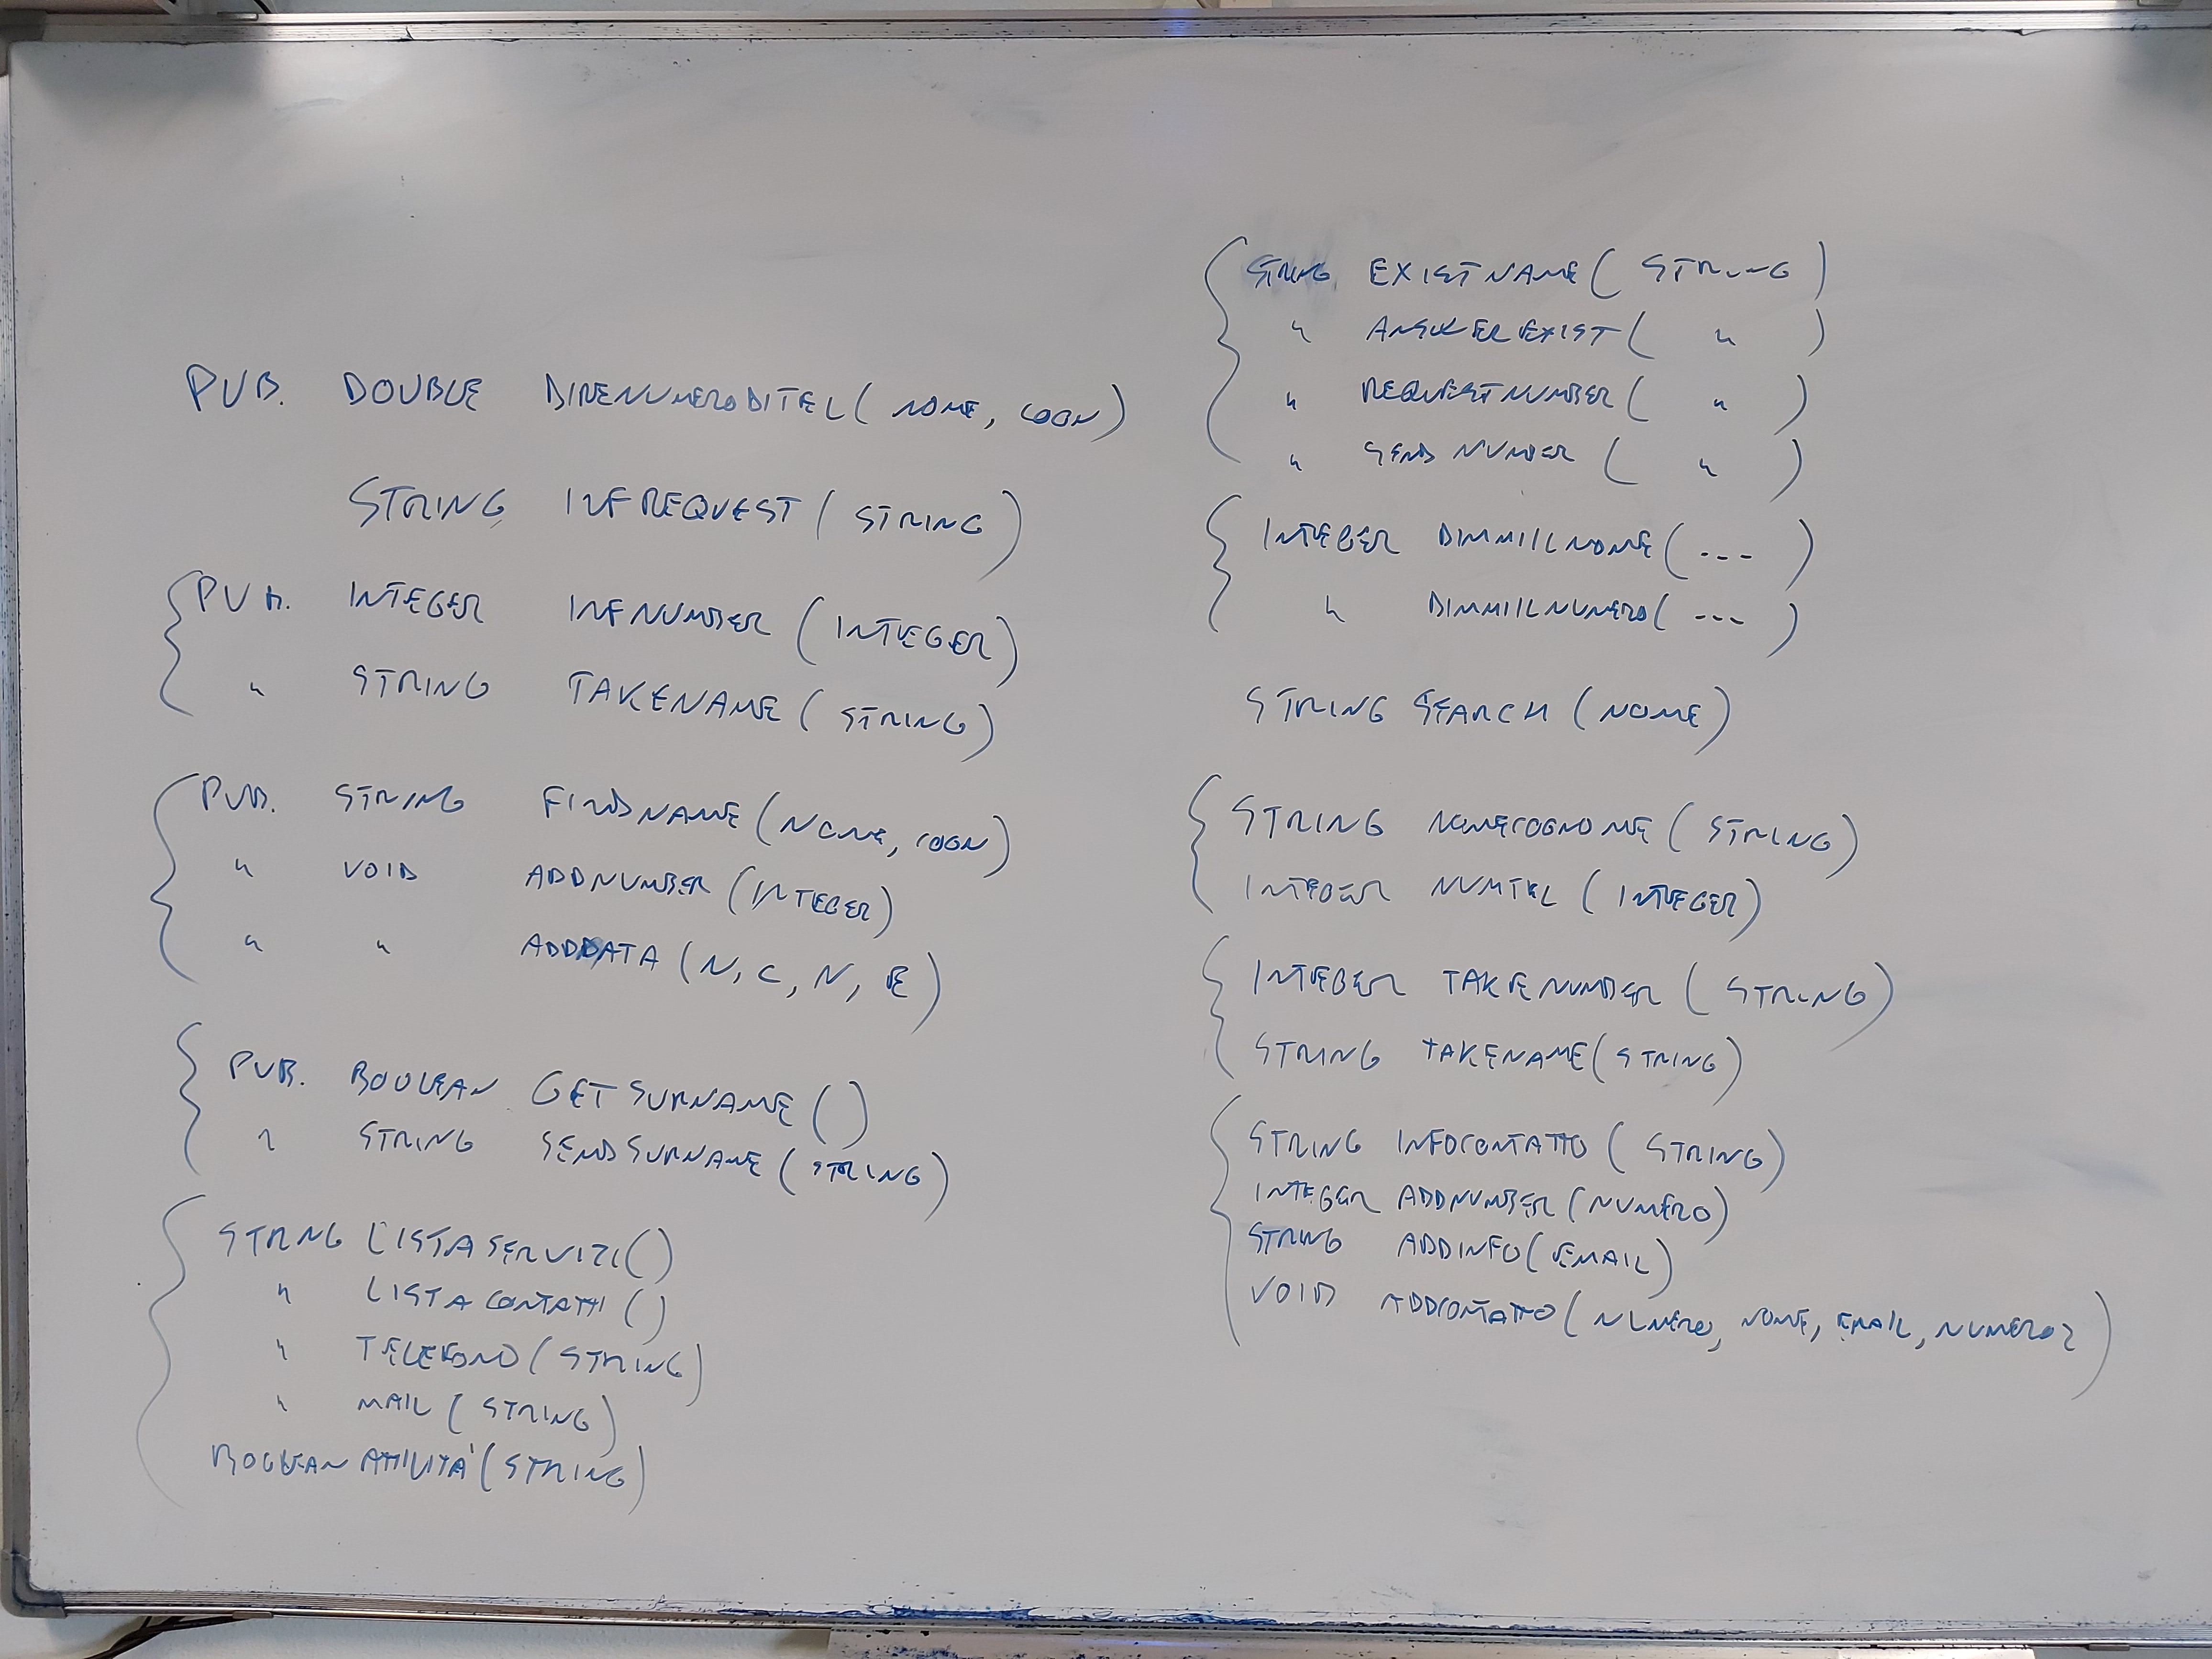 PUB. DOUBLE DIRENUMERODITEL( NOME, COGN)
STRING INFREQUEST( STRING)
PUB. INTEGER INFNUMBER (INTEGER)
" STRING TAKENAME( STRING)
PUB. STRING FINDNAME(NOME, COGN)
" VOID ADDNUMBER (INTEGER)
" " ADDDATA (N, C, N, E)
PUB. BOOLEAN GETSURNAME ()
" STRING SENDSURNAME( STRING)
STRNG LISTASERVIZI()
" LISTACONTATTI()
" TELEFONO(STRING)
" MAIL( STRING)
BOOLEAN ATTIVITA'(STRING)
STRING EXISTNAME( STRING)
" ANSWEREXIST( " )
" REQUESTNUMBER( " )
" SEND NUMBER ( " )
INTEGER DIMMIILNOME( --- )
" DIMMIILNUMERO( --- )
STRING SEARCH (NOME)
STRING NOMECOGNOME( STRING)
INTEGER NUMTEL (INTEGER)
INTEGER TAKENUMBER (STRING)
STRING TAKENAME(STRING)
STRING INFOCONTATTO ( STRING)
INTEGER ADDNUMBER(NUMERO)
STRING ADDINFO(EMAIL)
VOID ADDCONTATTO( NUMERO, NOME, EMAIL, NUMERO2)